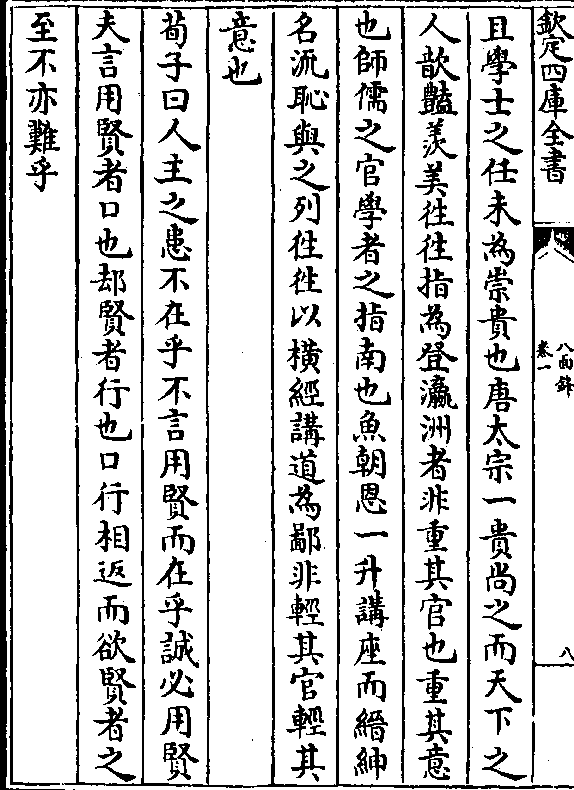 欽定四庫全書
八面鋒
卷一
八
且學士之任未為崇貴也唐太宗一貴尚之而天下之
人歆豔羡美徃徃指為登瀛洲者非重其官也重其意
也師儒之官學者之指南也魚朝恩一升講座而縉紳
名流恥與之列徃徃以橫經講道為鄙非輕其官輕其
意也
荀子曰人主之患不在乎不言用賢而在乎誠必用賢
夫言用賢者口也却賢者行也口行相返而欲賢者之
至不亦難乎